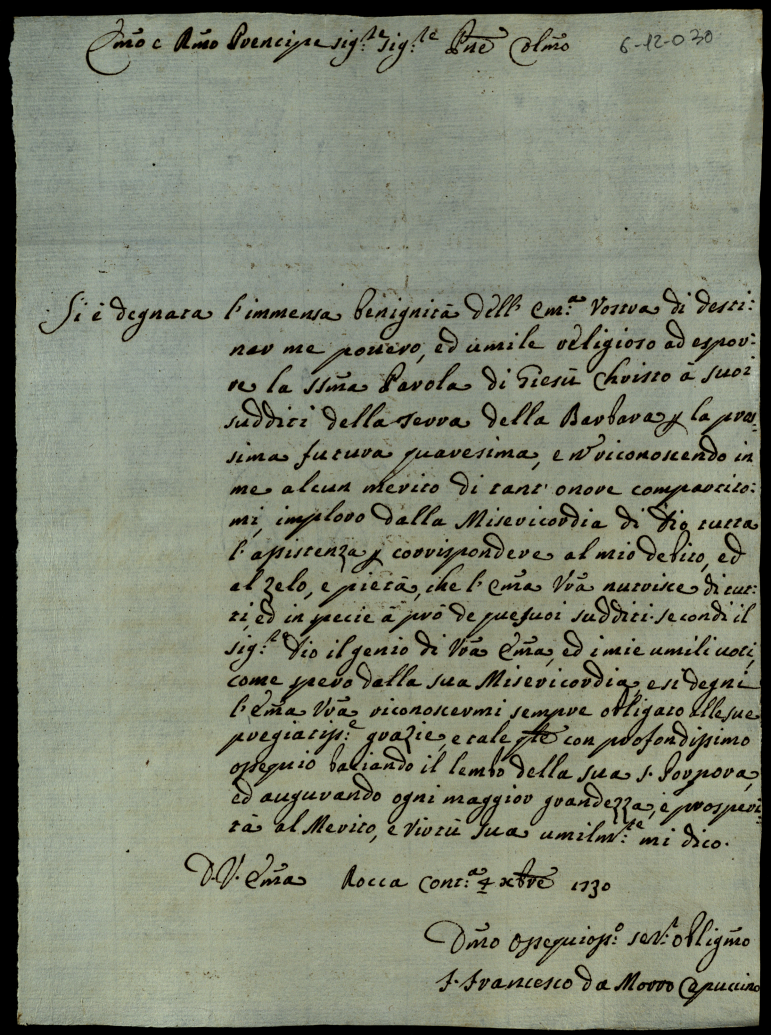 Em̃o e Rm̃o Prencipe Sig.re Sig.re Pñe Colm̃o 6-12-030
Si è degnata l'immensa benignità dell' Em.a Vostra di desti:
nar me povero, ed umile religioso ad espor:
re la SSm̃a Parola di Giesù Christo à suoi
sudditi della Serra della Barbara p la pros:
sima futura quaresima, e nõ riconoscendo in
me alcun merito di tant' onore compartito:
mi, imploro dalla Misericordia di Dio tutta
l'assistenza p corrispondere al mio debito, ed
al zelo, e pietà, che l'Em̃a Vrã nutrisce di tut:
ti, ed in specie à prò de questuoi sudditi. secondi il
Sig.re Dio il genio di Vrã Em̃a, ed i mie umili voti,
come spero dalla sua Misericordia, e si degni
l'Em̃a Vrã riconoscermi sempre obligato alle sue
pregiatiss.e grazie, e tale con profondissimo
ossequio baciando il lembo della sua S. Porpora,
ed augurando ogni maggior grandezza, e prosperi:
tà al Merito, e Virtù sua umilm.te mi dico.
D. V. Em̃a Rocca Cont.a 4 xbre 1730
Dm̃o Ossequios.o Ser.re obligm̃o
F. Francesco da Morro Capuccino